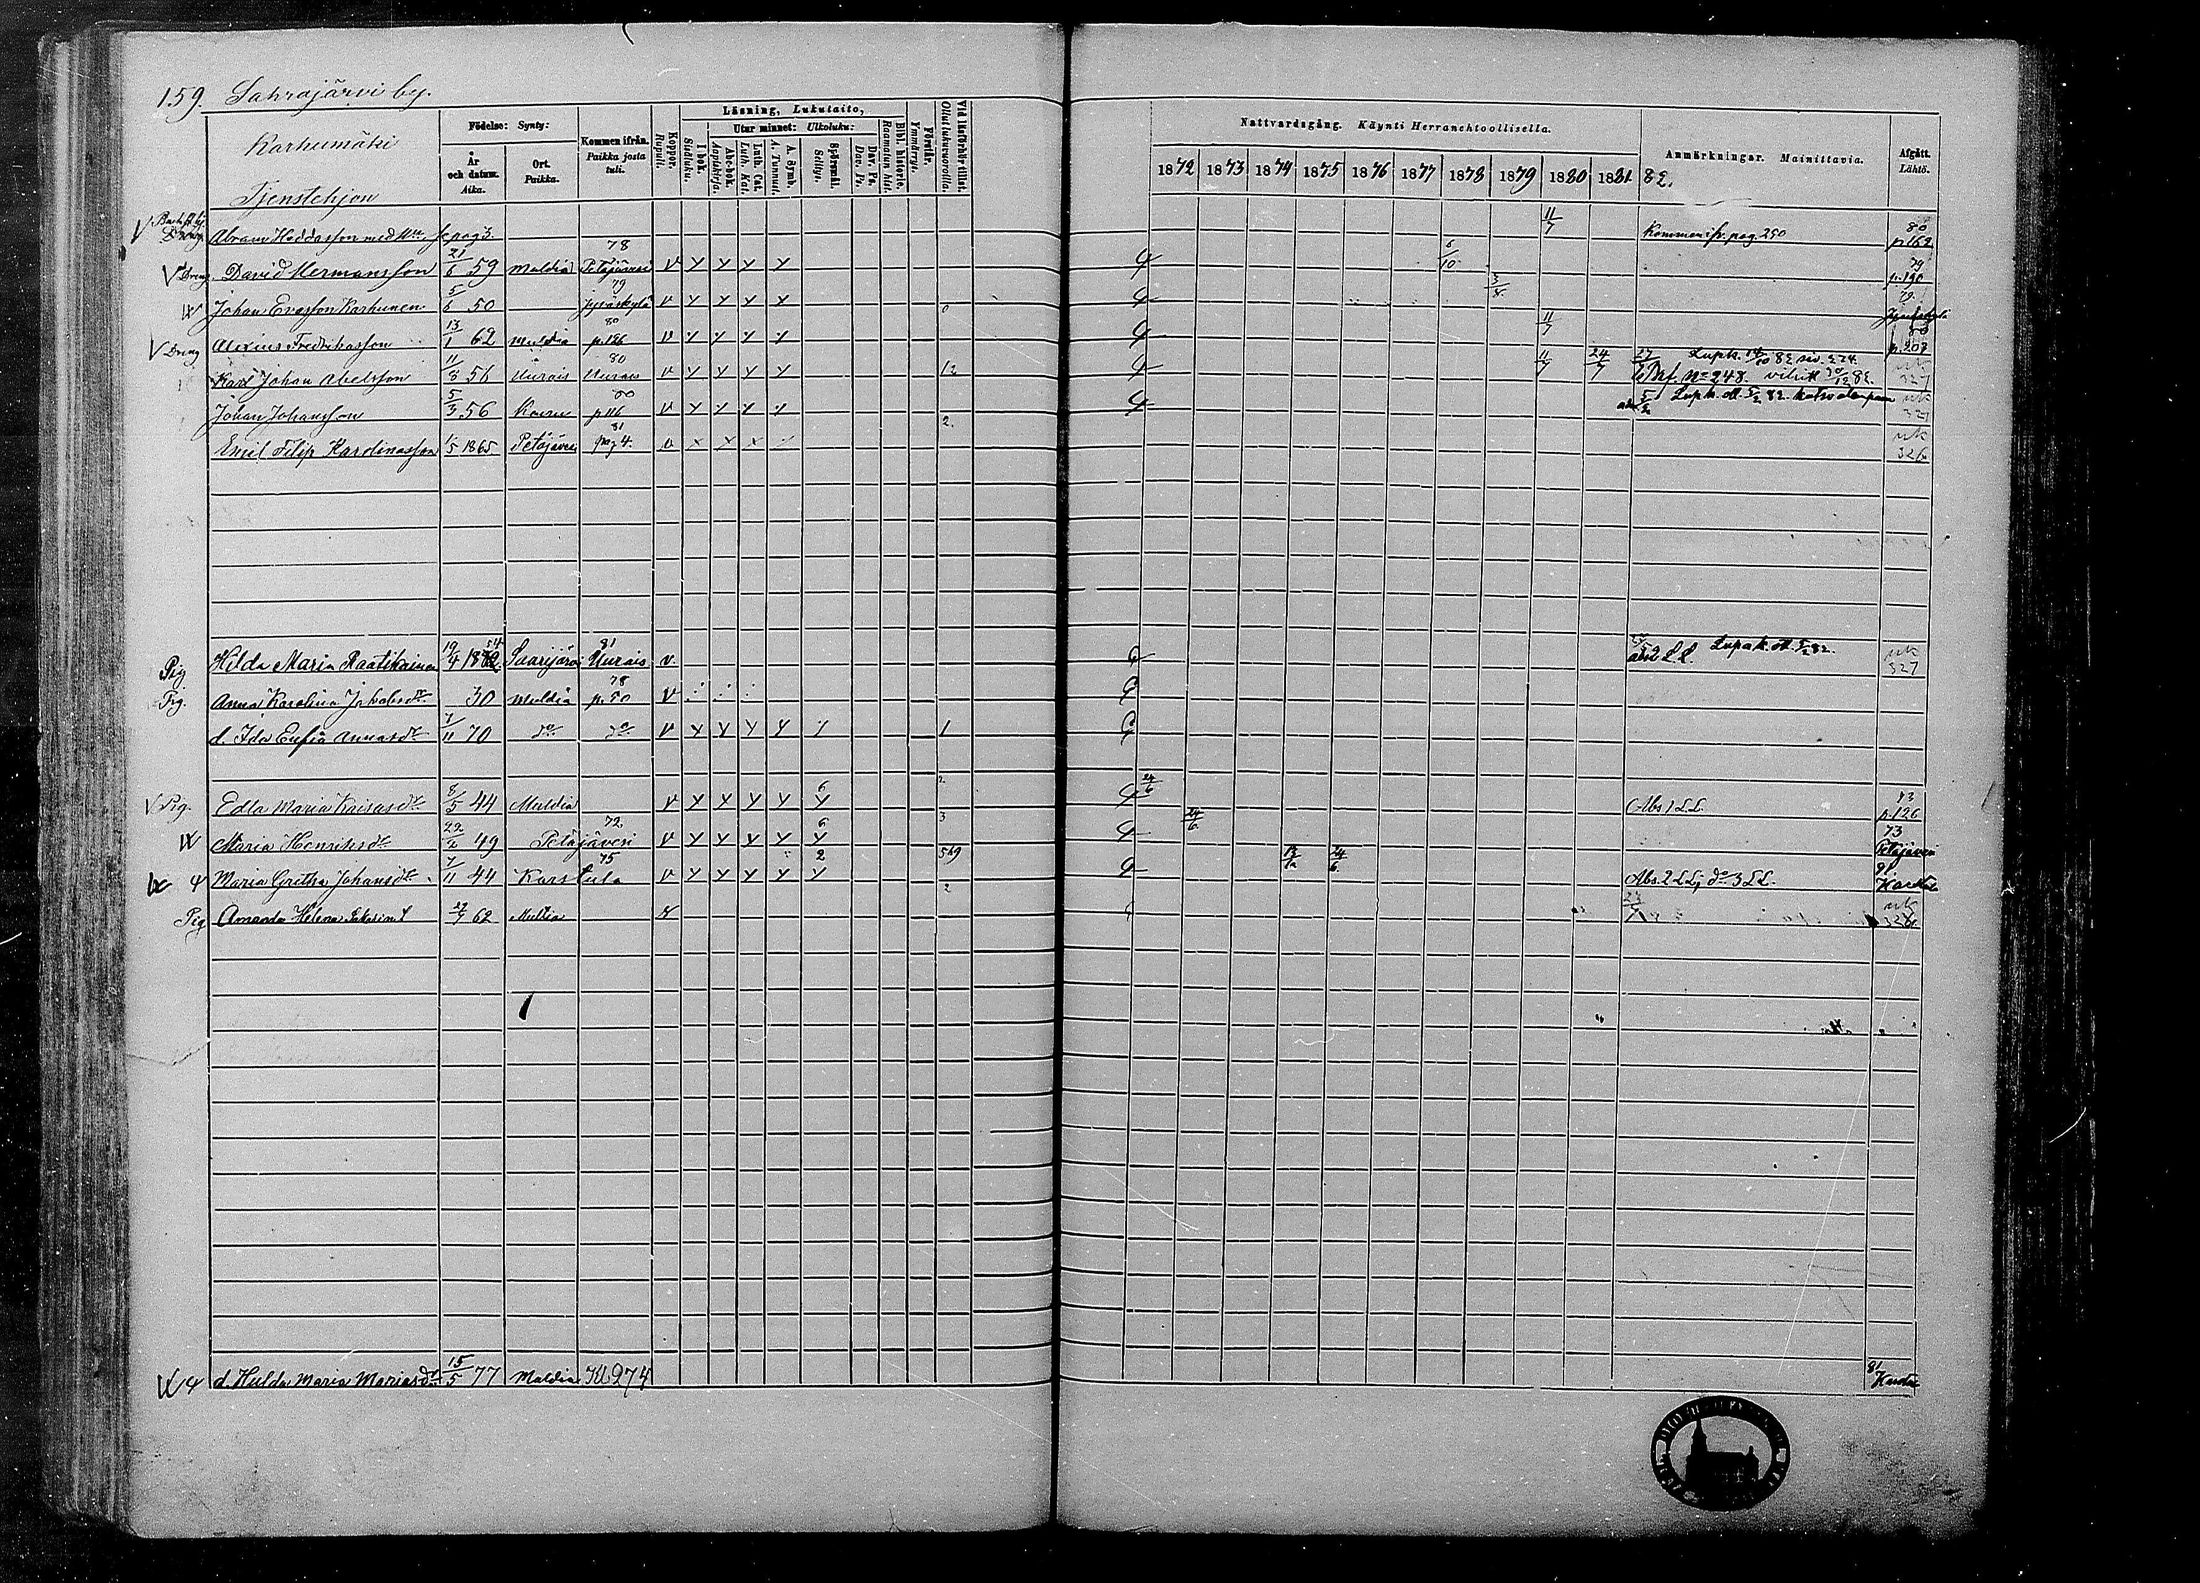 159. Sahrajärvi by.
Karhumäki
Tjenstehjon
Födelse: Synty:
År och datum. Aika.
Ort. Paikka.
Kommen ifrån. Paikka josta tuli.
Koppor. Rupuli.
Läsning, Lukutaito,
I bok. Sisäluku.
Utur minnet: Ulkoluku:
Abc-bok. Aapiskirja.
Luth. Cat. Luth. Kat.
A. Symb. A. Tunnust.
Spörsmål. Selitys.
Dav. Ps. Dav. Ps.
Bibl. historie. Raamatun hist.
Förstår. Ymmärrys.
Vid läsförhör tillst. Ollut lukuvuoroilla.
Nattvardsgång. Käynti Herranehtoollisella.
1872 1873 1874 1875 1876 1877 1878 1879 1880 1881 82.
Anmärkningar. Mainittavia.
Afgått. Lähtö.
Abram Heddasson med Hu se pag 3. 11/7 Kommen ifr. pag. 250 80 p. 162
V Dreng David Hermansson 21/6 59 Muldia 78 Petäjävesi v 6/10 79 p. 190
Johan Evasson Karhunen 5/6 50 79 Jyväskylä v 3/8 79. Jyväskylä
V Dreng Alexius Fredriksson 13/1 62 Muldia 80 p. 126 v 11/7 80 p. 207
Karl Johan Abelsson 11/8 56 Uurais 80 Uurais v 12 11/7 24/7 No 248. uk 327
Johan Johansson 5/3 56 80 p 116 v uk 327
Emil Filip Karolinasson 1/5 1865 Petäjävesi 81 pag 4. v 2. uk 326
Pig Hilda Maria Raatikainen 19/4 54 Saarijärvi 81 Uurais v. Lupak. ott. 5/2 82. uk 327
Pig. Anna Karolina Jakobsdr 30 Muldia 78 p. 80 v
d. Ida Eufia Annasdr 7/11 70 do do v 1
V Pig. Edla Maria Kaisasdr 8/5 44 Muldia v 6 2. 24/6 (Abs.) L.L. 73 p. 126
Maria Henriksdr 22/2 49 72. Petäjävesi v 6 3 24/6 73 Petäjävesi
Maria Gretha Johansdr 7/11 44 75 Karstula v 2 569 24/6 Abs. 2 L.L; do 3 L.L. Karstula
Pig Amanda Helena 62 Multia v 2 uk 326
d. Hulda Maria Mariasdr 15/5 77 Muldia 274 81 Karstu